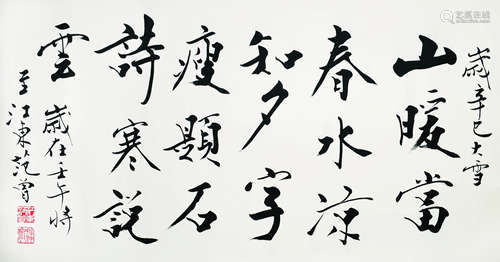 歲辛巳大雪
山暖當
春水凉
知夕字
瘦題石
詩寒說
雲
歲在壬午將
至江東范曾